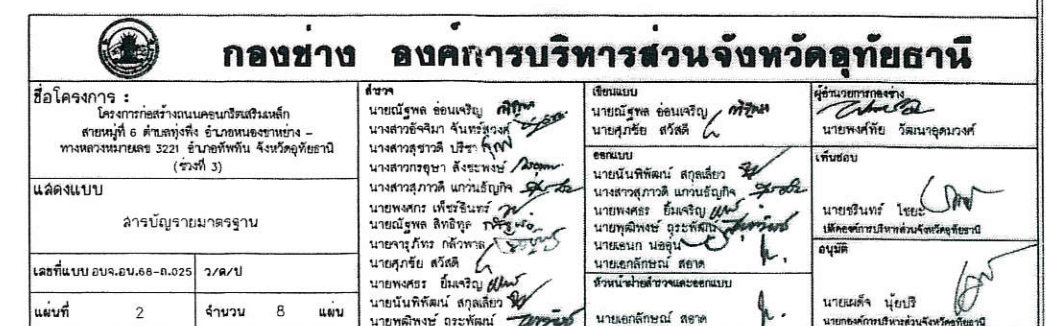 กองช่าง องค์การบริหารส่วนจังหวัดอุทัยธานี
ชื่อโครงการ :
โครงการก่อสร้างถนนคอนกรีตเสริมเหล็ก
สายหมู่ที่ 6 ตำบลทุ่งพึ่ง อำเภอหนองขาหย่าง –
ทางหลวงหมายเลข 3221 อำเภอทัพทัน จังหวัดอุทัยธานี
(ช่วงที่ 3)
แสดงแบบ
สารบัญรายมาตรฐาน
เลขที่แบบ อบจ.อน.68-ถ.025 ว/ด/ป
แผ่นที่ 2 จำนวน 8 แผ่น
สำรวจ
นายณัฐพล อ่อนเจริญ
นางสาวอัจจิมา จันทร์สุวงศ์
นางสาวสุชาวดี ปรีชา
นางสาวกรอุษา สังชะพงษ์
นางสาวสุภาวดี แก่วนธัญกิจ
นายพงศกร เพ็ชรอินทร์
นายณัฐพล สิทธิทูล
นายจารุภัทร กลัวพาล
นายศุภชัย สวัสดี
นายพงศธร ยิ้มเจริญ
นายนันพิพัฒน์ สกุลเลี่ยว
นายพุฒิพงษ์ ถุระพัฒน์
เขียนแบบ
นายณัฐพล อ่อนเจริญ
นายศุภชัย สวัสดี
ออกแบบ
นายนันพิพัฒน์ สกุลเลี่ยว
นางสาวสุภาวดี แก่วนธัญกิจ
นายพงศธร ยิ้มเจริญ
นายพุฒิพงษ์ ถุระพัฒน์
นายเอนก
นายเอกลักษณ์ สอาด
หัวหน้าฝ่ายสำรวจและออกแบบ
นายเอกลักษณ์ สอาด
ผู้อำนวยการกองช่าง
นายพงศ์ทัย วัฒนาอุดมวงศ์
เห็นชอบ
นายชรินทร์ ไชยะ
ปลัดองค์การบริหารส่วนจังหวัดอุทัยธานี
อนุมัติ
นายเผด็จ นุ้ยปรี
นายกองค์การบริหารส่วนจังหวัดอุทัยธานี